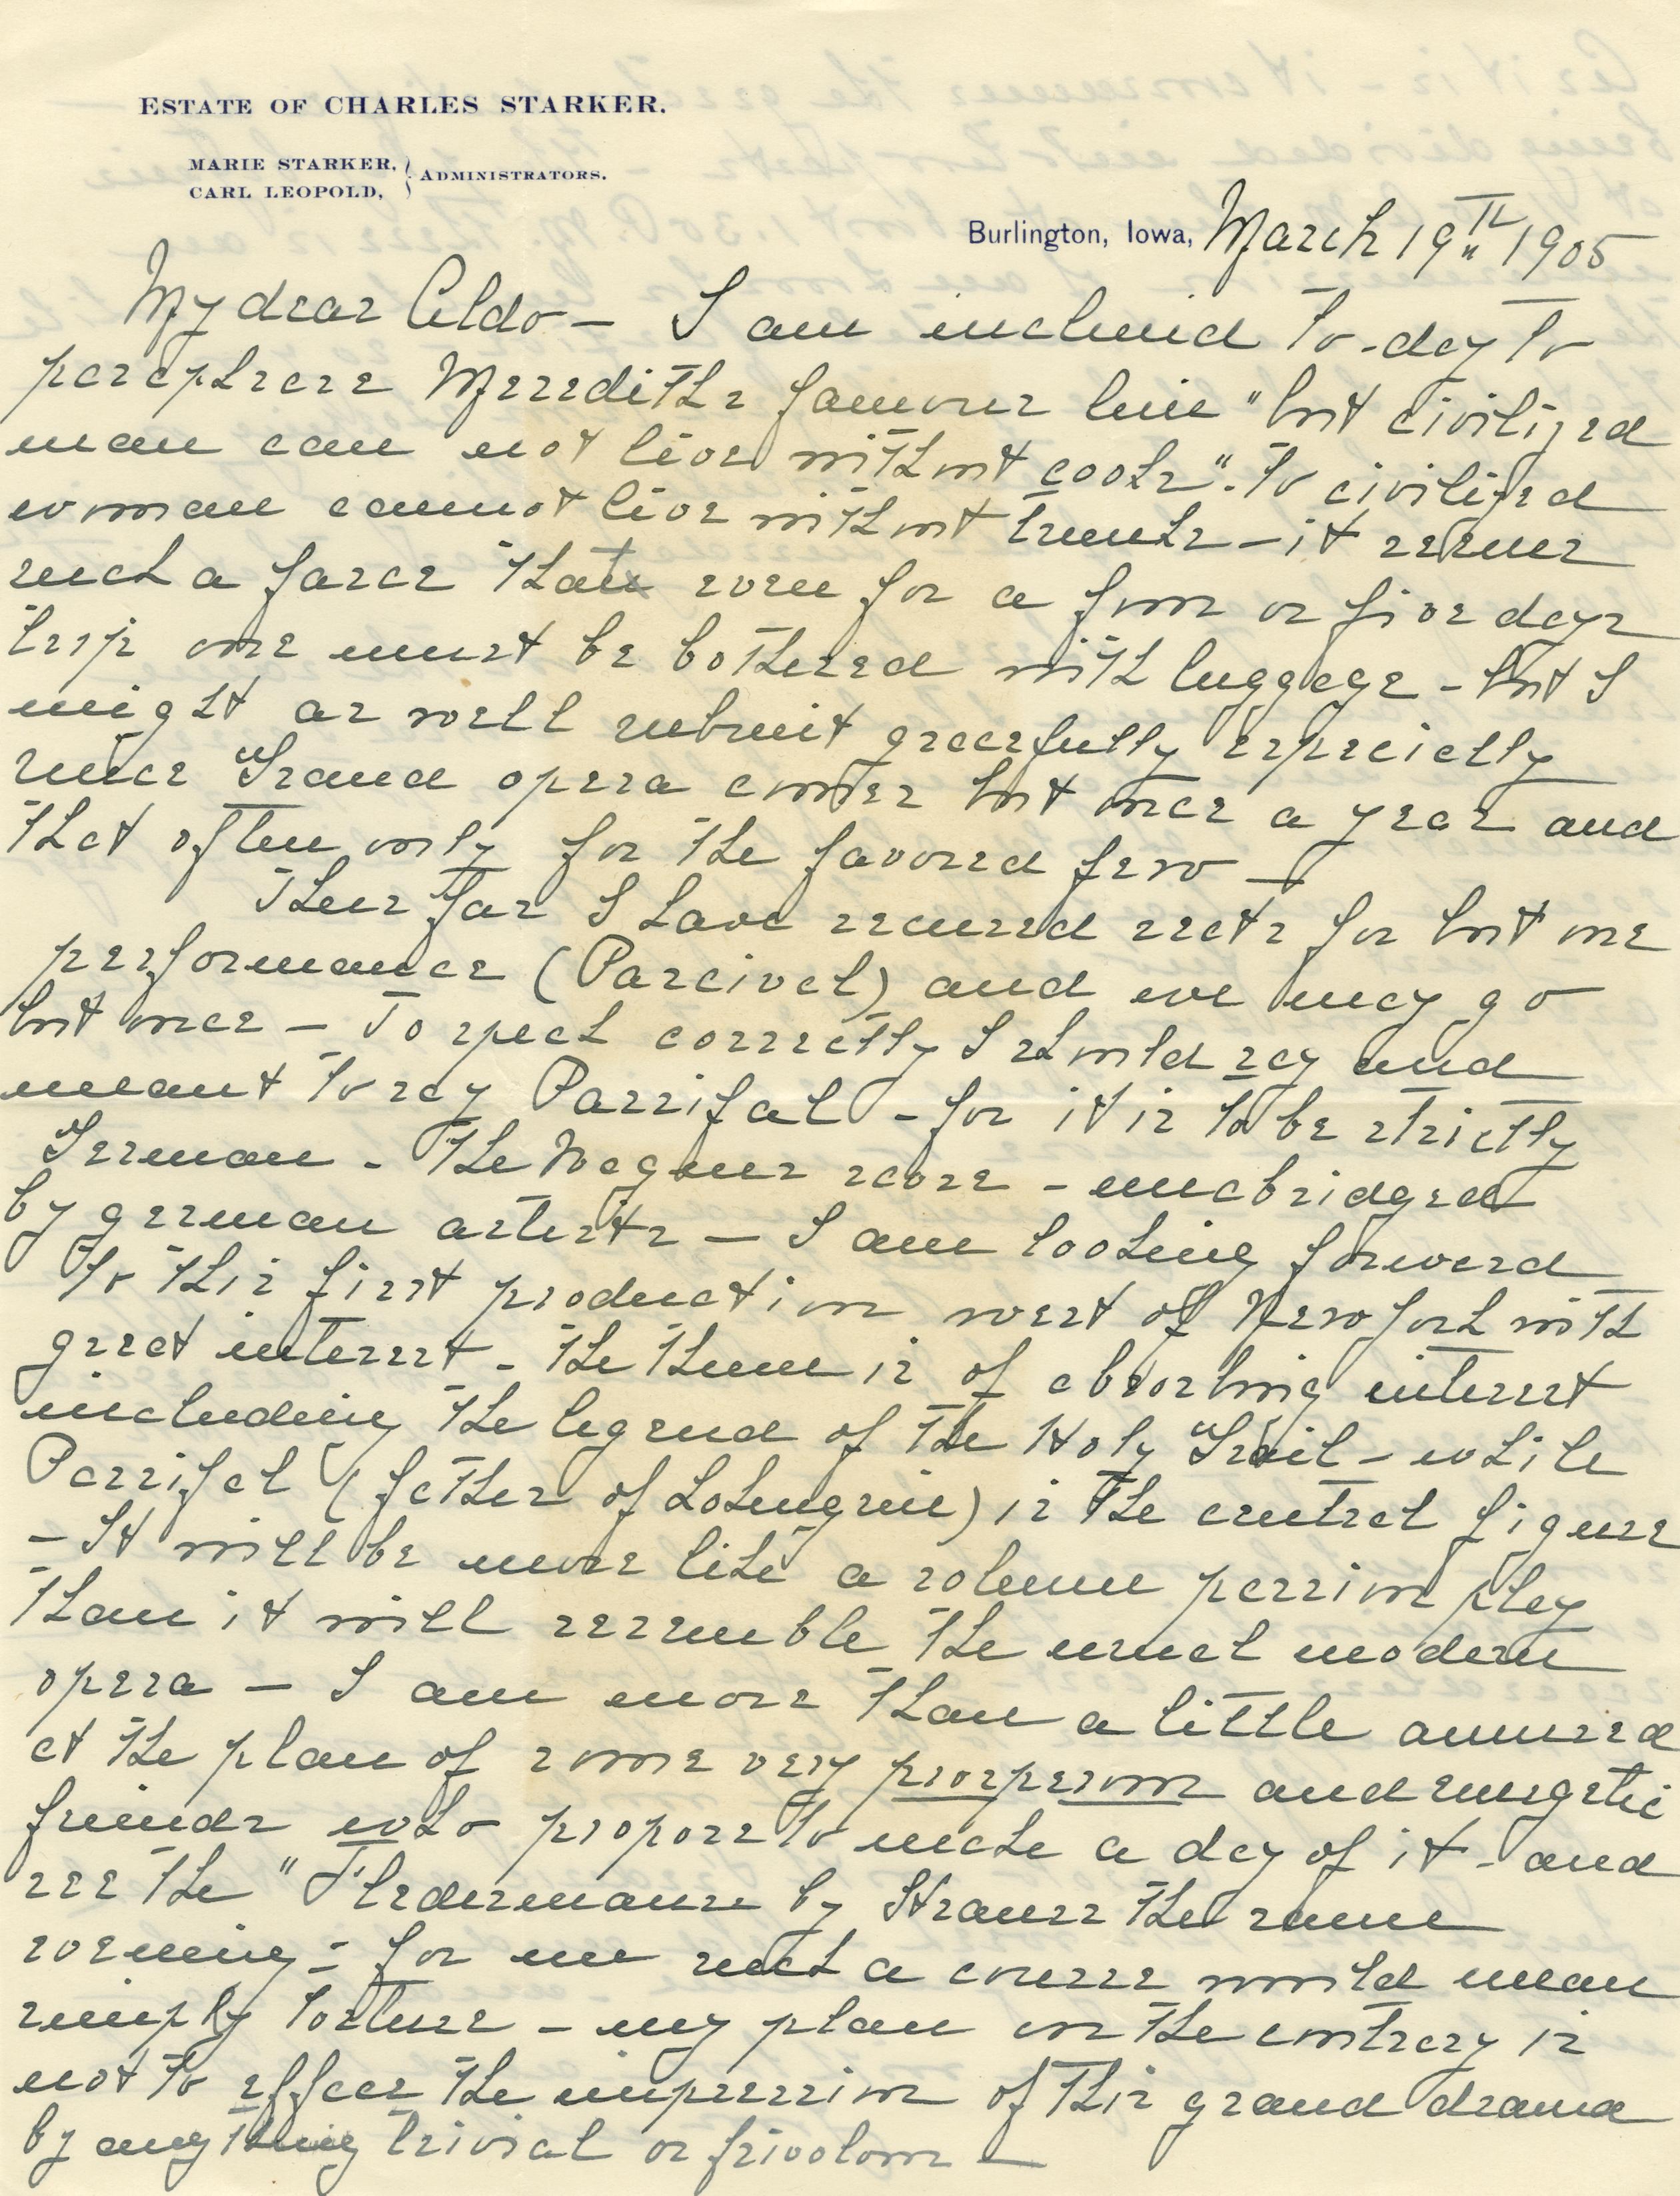 ESTATE OF CHARLES STARKER.
MARIE STARKER,
CARL LEOPOLD,
ADMINISTRATORS.
Burlington, Iowa, March 19th 1905
My dear Aldo – I am inclined to-day to
paraphrase Merediths famous line "but civilized
man can not live without cooks". to civilized
woman cannot live without trunks – it seems
such a farce that even for a four or five days
trip one must be bothered with luggage – but I
might as well submit gracefully especially
since Grand opera comes but once a year and
that often only for the favored few –
Thus far I have secured seats for but one
performance (Parcival) and we may go
but once – To speak correctly I should say and
meant to say Parsifal – for it is to be strictly
German – The Wagner score – unabridged
by german artists – I am looking forward
to this first production west of New York with
great interest – the theme is of absorbing interest
including the legend of the Holy Grail – while
Parsifal (father of Lohengrin) is the central figure
– It will be more like a solemn passion play
than it will resemble the usual modern
opera – I am more than a little amused
at the plan of some very prosperous and energetic
friends who propose to make a day of it – and
see the "Fledermaus by Strauss the same
evening – for me such a course would mean
simply torture – my plan on the contrary is
not to efface the impression of this grand drama
by anything trivial or frivolous –